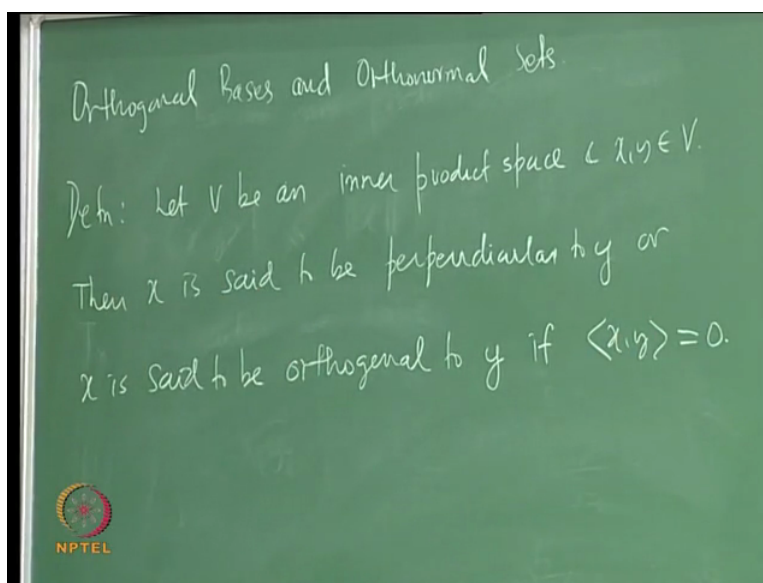 Orthogonal Bases and Orthonormal Sets.
Defn: Let V be an inner product space & x, y ∈ V.
Then x is said to be perpendicular to y or
x is said to be orthogonal to y if ⟨x, y⟩ = 0.
NPTEL